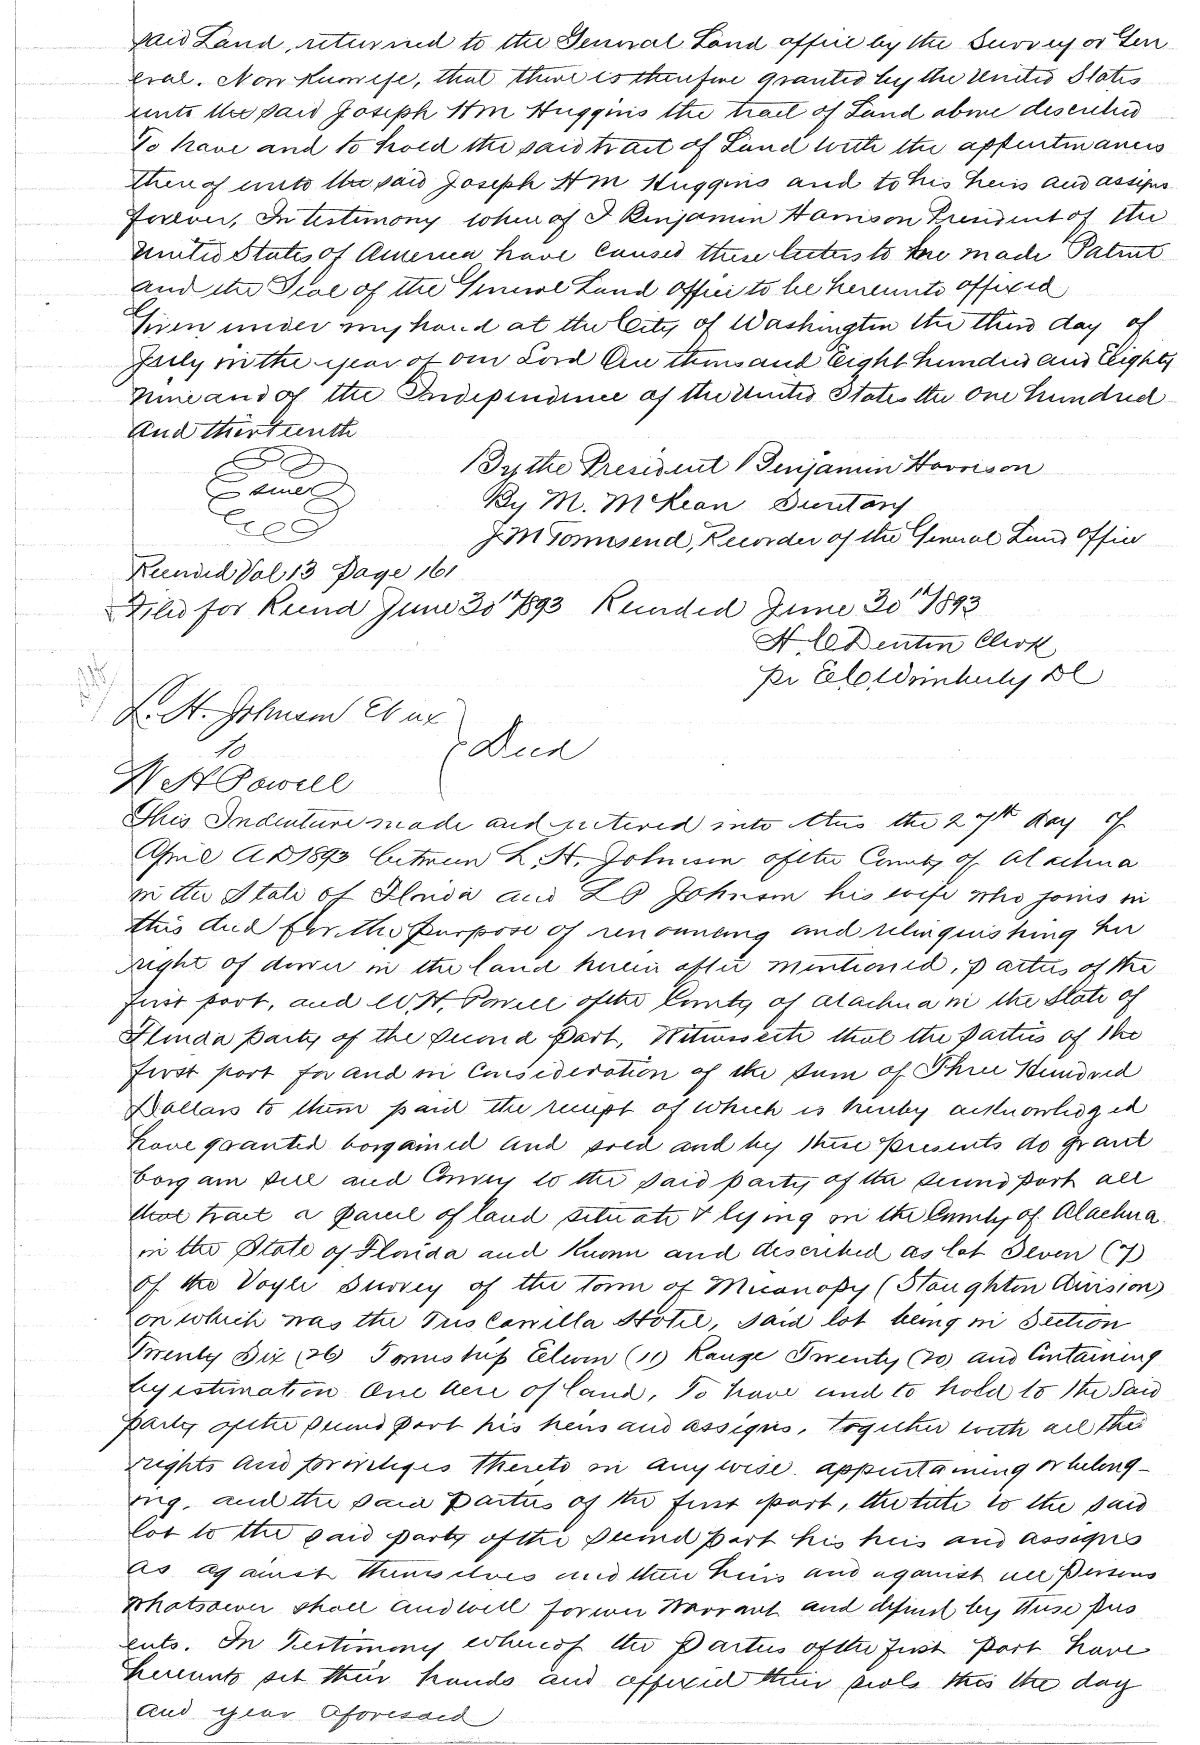 said Land, returned to the General Land office by the Surveyor Gen
eral. Now Know ye, that there is therefore granted by the United States
unto the said Joseph Wm Huggins the tract of Land above described
To have and to hold the said tract of Land with the appurtenances
thereof unto the said Joseph Wm Huggins and to his heirs and assigns
forever, In testimony whereof I Benjamin Harrison President of the
United States of America have caused these letters to be made Patent
and the Seal of the General Land office to be hereunto affixed
Given under my hand at the City of Washington the third day of
July in the year of our Lord One thousand Eight hundred and Eighty
nine and of the Independence of the United States the one hundred
and thirteenth
By the President Benjamin Harrison
By M. McKean Secretary
J M Townsend, Recorder of the General Land Office
Recorded Vol 13 Page 161
Filed for Record June 30th 1893 Recorded June 30th 1893
H. C. Denton Clerk
pr E. C. Wimberly DC
L. H. Johnson Et ux
to
Deed
W H Powell
This Indenture made and entered into this the 27th day of
April AD 1893 between L. H. Johnson of the County of Alachua
in the State of Florida and L O Johnson his wife who joins in
this deed for the purpose of renouncing and relinquishing her
right of dower in the land herein after mentioned, parties of the
first part, and W. H. Powell of the County of Alachua in the State of
Florida party of the second part, Witnesseth that the parties of the
first part for and in consideration of the sum of Three Hundred
Dollars to them paid the receipt of which is hereby acknowledged
have granted bargained and sold and by these presents do grant
bargain sell and Convey to the said party of the second part all
that tract a parcel of land situate & lying in the County of Alachua
in the State of Florida and Known and described as lot Seven (7)
of the Voyle Survey of the town of Micanopy (Stoughton division)
on which was the Tuscawilla Hotel, said lot being in Section
Twenty Six (26) Township Eleven (11) Range Twenty (20) and Containing
by estimation One Acre of land, To have and to hold to the said
party of the second part his heirs and assigns, together with all the
rights and privileges thereto in any wise appertaining or belong-
ing, and the said parties of the first part, the title to the said
lot to the said party of the second part his heirs and assigns
as against themselves and their heirs and against all persons
whatsoever shall and will forever warrant and defend by these pres
ents. In Testimony whereof the parties of the first part have
hereunto set their hands and affixed their seals this the day
and year aforesaid